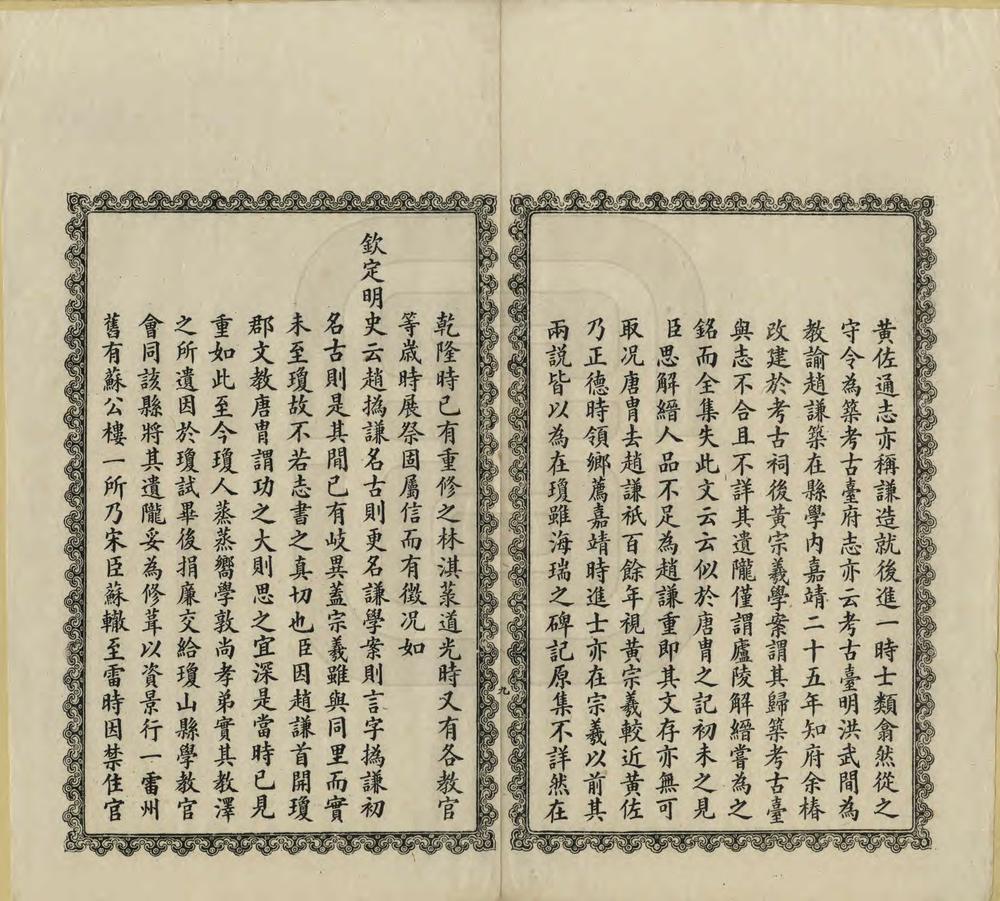 黃佐通志亦稱謙造就後進一時士類翕然從之
守令為築考古臺府志亦云考古臺明洪武間為
教諭趙謙築在縣學內嘉靖二十五年知府余椿
改建於考古祠後黃宗羲學案謂其歸築考古臺
與志不合且不詳其遺隴僅謂廬陵解縉嘗為之
銘而全集失此文云云似於唐胄之記初未之見
臣思解縉人品不足為趙謙重即其文存亦無可
取况唐胄去趙謙祇百餘年視黃宗羲較近黃佐
乃正德時領鄉薦嘉靖時進士亦在宗羲以前其
兩說皆以為在瓊雖海瑞之碑記原集不詳然在
九
乾隆時已有重修之林淇菉道光時又有各教官
等歲時展祭固屬信而有徵况如
欽定明史云趙撝謙名古則更名謙學案則言字撝謙初
名古則是其間已有歧異蓋宗羲雖與同里而實
未至瓊故不若志書之真切也臣因趙謙首開瓊
郡文教唐胄謂功之大則思之宜深是當時已見
重如此至今瓊人蒸蒸嚮學敦尚孝弟實其教澤
之所遺因於瓊試畢後捐廉交給瓊山縣學教官
會同該縣將其遺隴妥為修葺以資景行一雷州
舊有蘇公樓一所乃宋臣蘇轍至雷時因禁住官